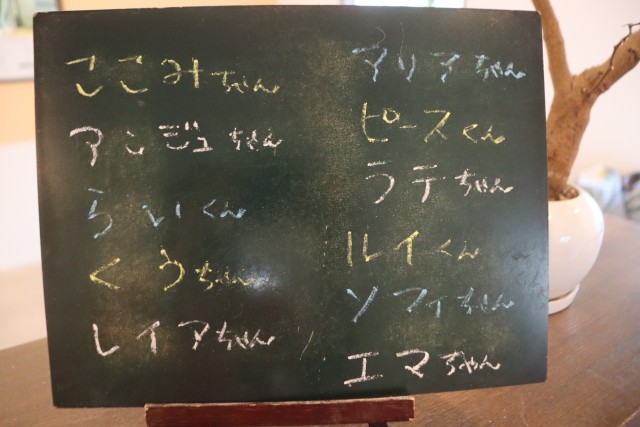 ここみちゃん
アンジュちゃん
らいくん
くうちゃん
レイアちゃん
マリアちゃん
ピースくん
ラテちゃん
ルイくん
ソフィちゃん
エマちゃん